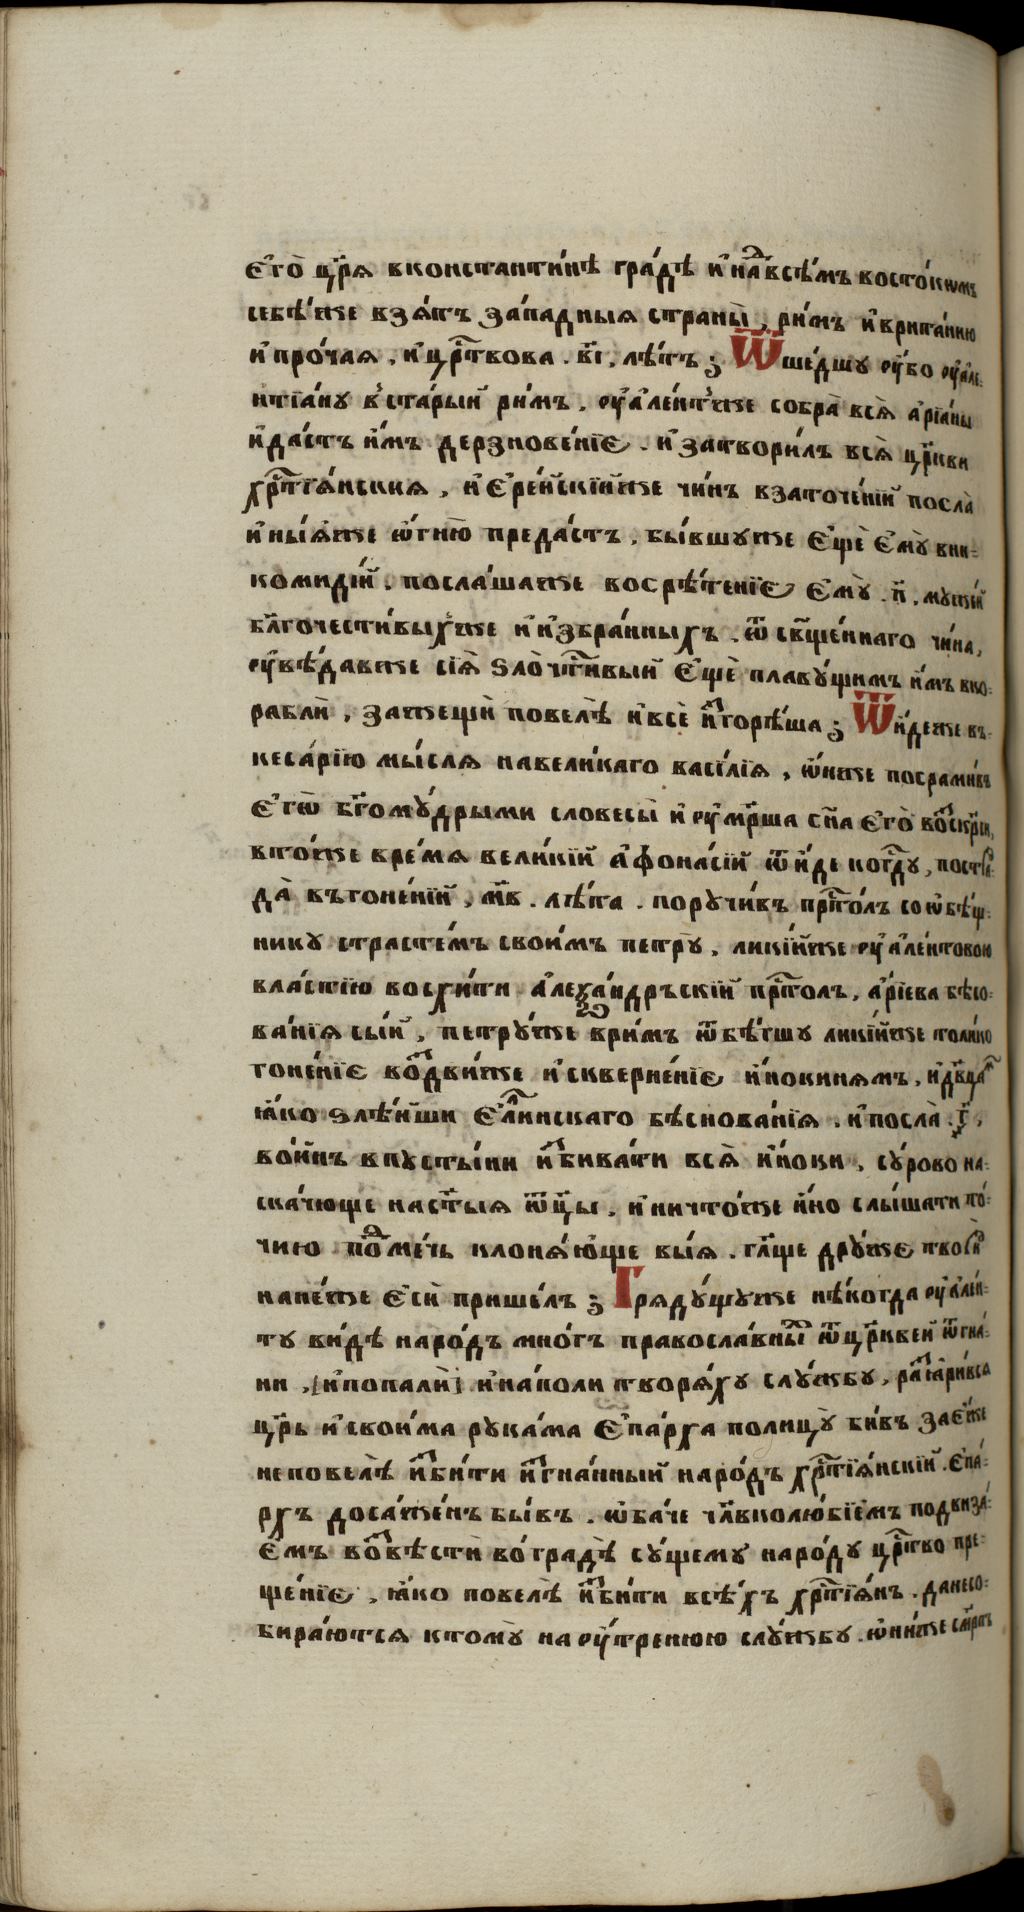 его̀ цр҃ѧ вконстантинѣ гра́дѣ и҆наⷣвсѣ́мъ восто́комъ
себѣ́же взѧ́тъ за́падныѧ страны̀, ри́мъ и҆врита́нию
и҆про́чаѧ, и҆црⷭ҇твова. в҃і, лѣ́тъ; Ѿше́дшу ѹ҆́бо ѹ҆але-
нтїа́ну в̾ста́рый ри́мъ, ѹ҆але́нтже собра̀ всѧ̀ а҆рїа́ны
и҆да́стъ и҆́мъ дерзнове́нїе. и҆затвори́лъ всѧ̀ цр҃кви
хрⷭ҇тїѧ́нскиѧ, и҆є҆ре́йскїйже чи́нъ взаточе́нїй посла̀
и҆ны́ѧже ѻ҆гню̀ преда́стъ, бы́вшуже є҆щѐ є҆мꙋ̀ вни-
комиди́й, посла́шаже восрѣ́тенїе є҆мꙋ̀. п҃, мꙋже́й
бл҃гочести́выхже и҆и҆збра́нныхъ. ѿ сщ҃е́ннаго чи́на,
ѹ҆вѣ́давже сїѧ̀ ѕлоⷱ҇ти́вый є҆щѐ плаву́щимъ и҆́мъ вко-
раблѝ, зажещѝ повелѣ̀ и҆всѐ и҆ⷥгорѣ́ша; Ѿи́деже въ-
кеса́рїю мы́слѧ навели́каго васі́лїѧ, ѻ҆́нже посрами́въ
є҆гѡ̀ бг҃ому́дрыми словесы̀ и҆ ѹ҆ме́рша сн҃а є҆го̀ воⷭ҇кр҃си,
вто́же вре́мѧ вели́кїй а҆фона́сїй ѿи́де когⷭ҇ду, постра-
да̀ въгоне́нїй, м҃в. лѣ́та. поручи́въ прⷭ҇то́лъ соѻ҆бѣ́щ-
нику страсте́мъ свои́мъ петру̀, лики́йже ѹ҆але́нтовою
вла́стїю восхи́ти а҆леѯа́ндръскїй прⷭ҇толъ, а҆рїева бѣсо-
ва́нїѧ сы́й, петру́жеври́мъ ѿбѣ́гшу лики́йже толи́ко
гоне́нїе воⷥдви́же и҆скверне́нїе и҆́нокинѧмъ, и҆дв҃цаⷨ
ꙗ҆́ко ѕлѣ́йши є҆́ллинскаго бѣснова́нїѧ. и҆посла̀ .г҃,
во́йнъ впусты́ни и҆ⷥбива́ти всѧ̀ и҆́ноки, су́рово на-
ска́чюще настⷭ҇ыѧ ѻ҆ц҃ы, и҆ничто́же и҆́но слы́шати то́-
чию поⷣме́чь клонѧ́юще вы́ѧ. гл҃ще дру́же твоѧⷡ҇
напе́же є҆сѝ прише́лъ; Гряду́щуже нѣ́когда ѹ҆але́н-
ту ви́дѣ наро́дъ мно́гъ правосла́вныⷯ ѿцр҃квей ѿгна́-
ни, [и҆попалѝ] и҆напо́ли творѧ́ху слу́жбу, раⷥѧри́всѧ
цр҃ь и҆свои́ма рука́ма є҆па́рха полицу̀ би́въ заѐже
неповелѣ̀ и҆ⷥби́ти и҆ⷥгна́нный наро́дъ хрⷭ҇тїѧ́нскїй. є҆па́-
рхъ доса́жденъ бы́въ. ѻ҆ба́че чл҃вколю́бїемъ подвиза́-
емъ воⷥвѣсти́ во́градѣ су́щему наро́ду црⷭ҇тво пре-
ще́нїе, ꙗ҆́ко повелѣ̀ и҆ⷥби́ти всѣ́хъ хрⷭ҇тїѧ́нъ. данесо-
бира́ютсѧ ктому̀ на ѹ҆́тренюю слу́жбу. ѻ҆ни́же смр҃тъ